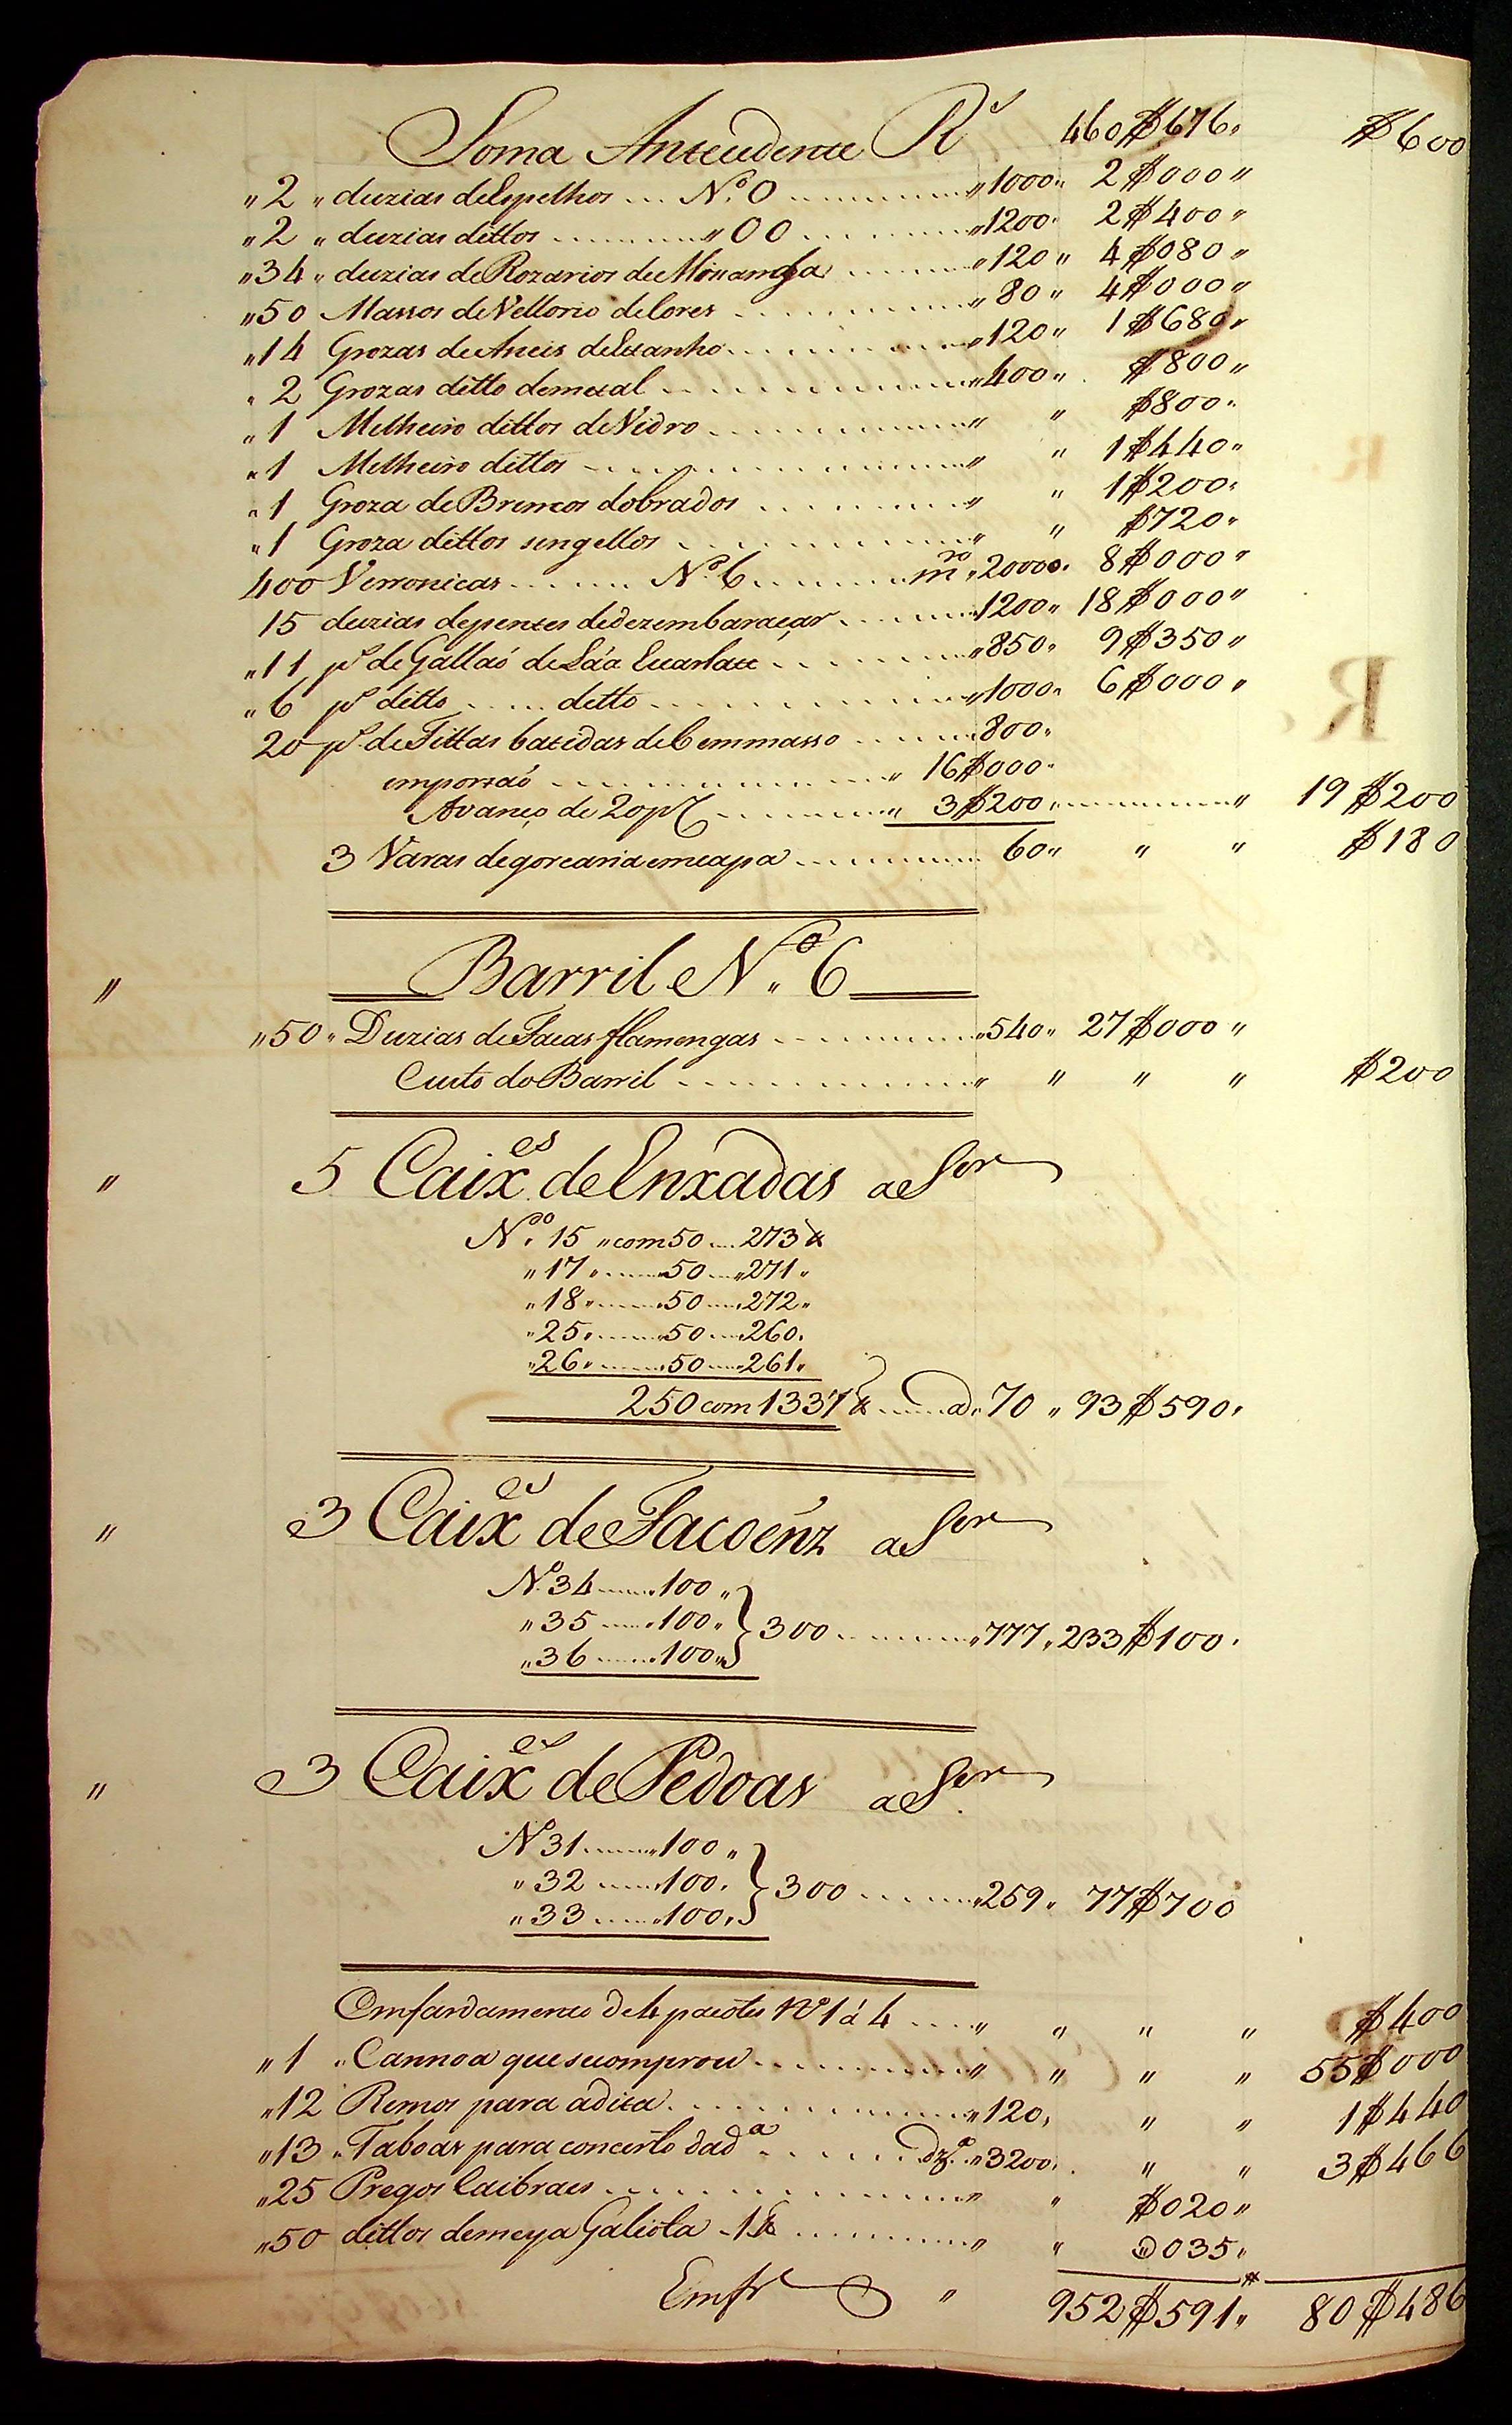 Soma Antecedente Rs 460$676 $600
" 2 " duzias deEspelhos ... No. 0 ... " 1000 " 2$000 "
" 2 " duzias dittos ... " 00 ... " 1200 " 2$400 "
" 34 " duzias de Rozarios de ... " 120 " 4$080 "
" 50 Massos de Vellorio deCores ... " 80 " 4$000 "
" 14 Grozas de Aneis deEstanho ... " 120 " 1$680 "
" 2 Grozas ditto demetal ... " 400 " $800 "
" 1 Milheiro dittos de Vidro ... " " $800 "
" 1 Milheiro dittos ... " " 1$440 "
" 1 Groza de Brincos dobrados ... " " 1$200 "
" 1 Groza dittos singellos ... " " $720 "
400 Verronicas ... No. 6 ... mro " 20000 " 8$000 "
15 duzias depentes dedezembaraçar ... 1200 " 18$000 "
" 11 ps de Gallaó de Láa Escarlate ... " 850 " 9$350 "
" 6 ps ditto ... ditto ... " 1000 " 6$000 "
20 ps de Fittas batidas de 6 emmasso ... 800 "
emportaó ... " 16$000 "
Avanço de 20 p% ... " 3$200 " ... " 19$200
3 Varas degorcaria emcapa ... 60 " " " $180
" Barril No. 6
" 50 " Duzias de Facas flamengas ... " 540 " 27$000 "
Custo do Barril ... " " " " $200
" 5 Caixes de Enxadas a Ser
Nos. 15 " com 50 ... 273 lb
" 17 " ... 50 ... " 271 "
" 18 " ... 50 ... 272 "
" 25 " ... 50 ... 260 "
" 26 " ... 50 ... 261 "
250 com 1337 lb ... a " 70 " 93$590 "
" 3 Caixes de Facoéńz a Ser
No. 34 ... 100 "
" 35 ... 100 " } 300 ... " 777 " 233$100 "
" 36 ... 100 "
" 3 Caixes de Pedoas a Ser
No 31 ... 100 "
" 32 ... 100 " } 300 ... " 259 " 77$700
" 33 ... 100 "
Emfardamento de 4 pacotes No 1 á 4 ... " " " " $400
" 1 " Cannoa quesecomprou ... " " " " 55$000
" 12 Remos para adita ... " 120 " " " 1$440
" 13 " Taboas para concerto dada ... dza " 3200 " " " 3$466
" 25 Pregos Caibraes ... " " $020 "
" 50 dittos demeya Galiota - 1 lb ... " " $035 "
Emfr " 952$591 " 80$486